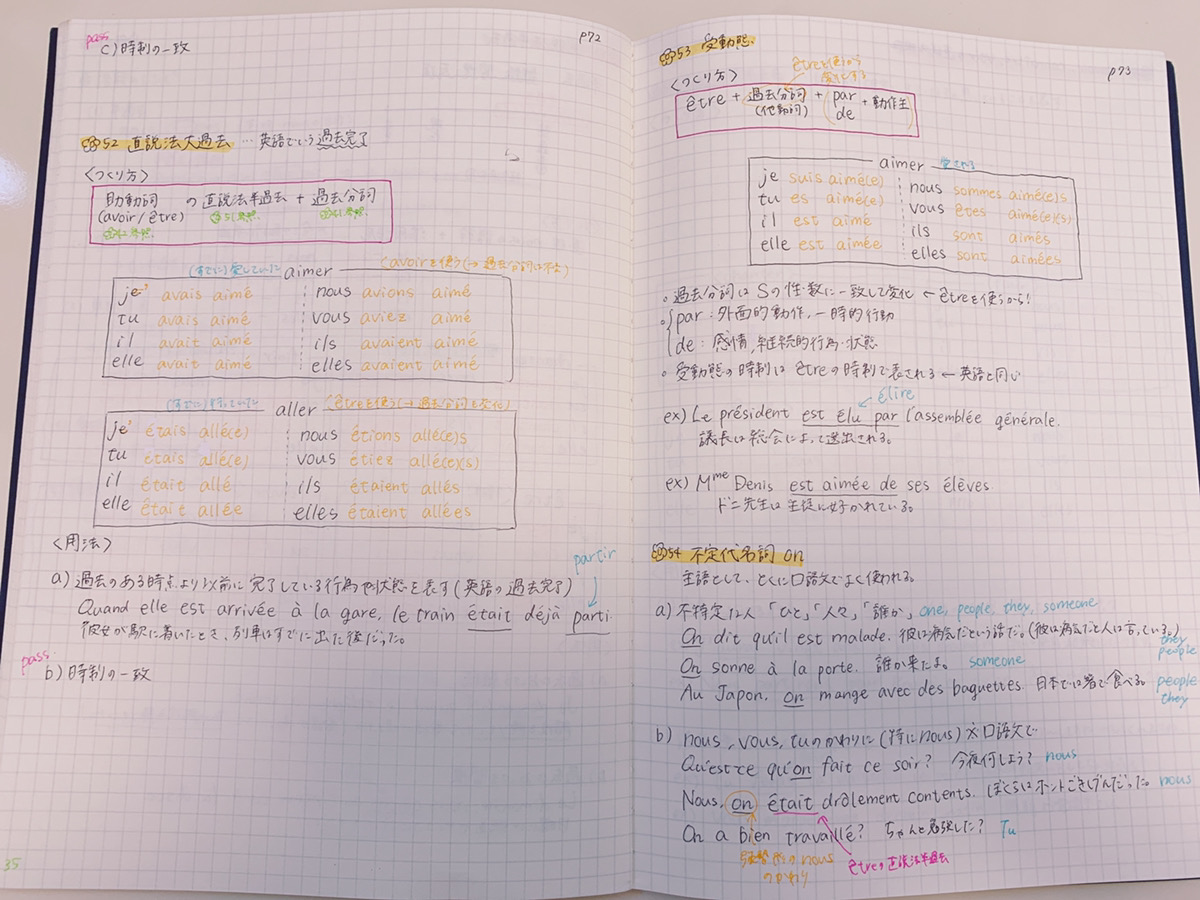 pass
c) 時制の一致
p72
52 直説法大過去 … 英語でいう過去完了
〈つくり方〉
助動詞 の直説法半過去 + 過去分詞
(avoir / être)
(すでに)愛していた aimer (avoirを使う(→過去分詞は不変)
je' avais aimé nous avions aimé
tu avais aimé vous aviez aimé
il avait aimé ils avaient aimé
elle avait aimé elles avaient aimé
(すでに)行っていた aller (êtreを使う(→過去分詞も変化)
je' étais allé(e) nous étions allé(e)s
tu étais allé(e) vous étiez allé(e)(s)
il était allé ils étaient allés
elle était allée elles étaient allées
〈用法〉
partir
a) 過去のある時点より以前に完了している行為や状態を表す(英語の過去完了)
Quand elle est arrivée à la gare, le train était déjà parti.
彼女が駅に着いたとき、列車はすでに出た後だった。
pass
b) 時制の一致
35
53 受動態
p73
〈つくり方〉
être + 過去分詞 + par + 動作主
(他動詞) de
aimer 愛される
je suis aimé(e) nous sommes aimé(e)s
tu es aimé(e) vous êtes aimé(e)(s)
il est aimé ils sont aimés
elle est aimée elles sont aimées
。過去分詞はSの性・数に一致して変化 ← êtreを使うから!
。par : 外面的動作, 一時的行動
de : 感情, 継続的行為・状態
。受動態の時制は êtreの時制で表される ← 英語と同じ
élire
ex) Le président est élu par l'assemblée générale.
議長は総会によって選出される。
ex) Mme Denis est aimée de ses élèves.
ドニ先生は生徒に好かれている。
54 不定代名詞 on
主語として、とくに口語文でよく使われる。
a) 不特定な人 「ひと」,「人々」,「誰か」 one, people, they, someone
On dit qu'il est malade. 彼は病気だという話だ。(彼は病気だと人は言っている。)
they
people
On sonne à la porte. 誰か来たよ。 someone
Au Japon, on mange avec des baguettes. 日本では箸で食べる。 people
they
b) nous, vous, tuのかわりに(特にnous) 口語文で
Qu'est-ce qu'on fait ce soir? 今夜何しよう? nous
Nous, on était drôlement contents. ぼくらはホントごきげんだった。 nous
On a bien travaillé? ちゃんと勉強した? Tu
nous
のかわり
êtreの直説法半過去